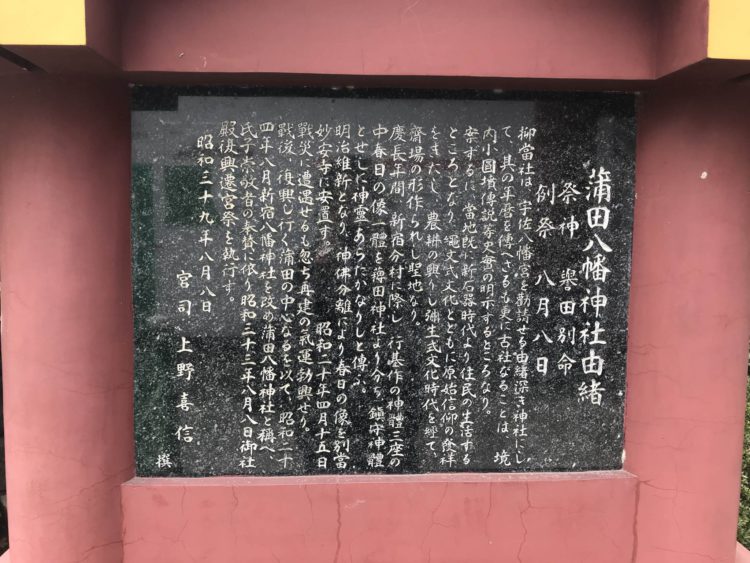 蒲田八幡神社由緒
祭神 譽田別命
例祭 八月八日
抑當社は、宇佐八幡宮を勸請せる由緒深き神社にし
て、其の年暦を傳へざるも更に古社なることは、境
内小圓墳傳説等史家の明示するところなり。
案するに、當地既に新石器時代より住民の生活する
ところとなり、繩文式文化とともに原始信仰の發祥
をきたし、農耕の興りし彌生式文化時代を經て、
齋場の形作られし聖地なり。
慶長年間、新宿分村に際し 行基作の神體三座の
中春日の像一體を薭田神社より分ち、鎮守神體
とせしに神靈あらたかなりしと傳ふ。
明治維新となり、神佛分離により春日の像を別當
妙安寺に安置す。 昭和二十年四月十五日
戰災に遭遇せるも忽ち再建の氣運勃興せり。
戰後、復興し行く蒲田の中心なるを以て、昭和二十
四年八月新宿八幡神社を改め蒲田八幡神社と稱へ、
氏子崇敬者の奉賛に依り昭和三十三年八月八日御社
殿復興遷宮祭を執行す。
昭和三十九年八月八日
宮司 上野喜信 撰